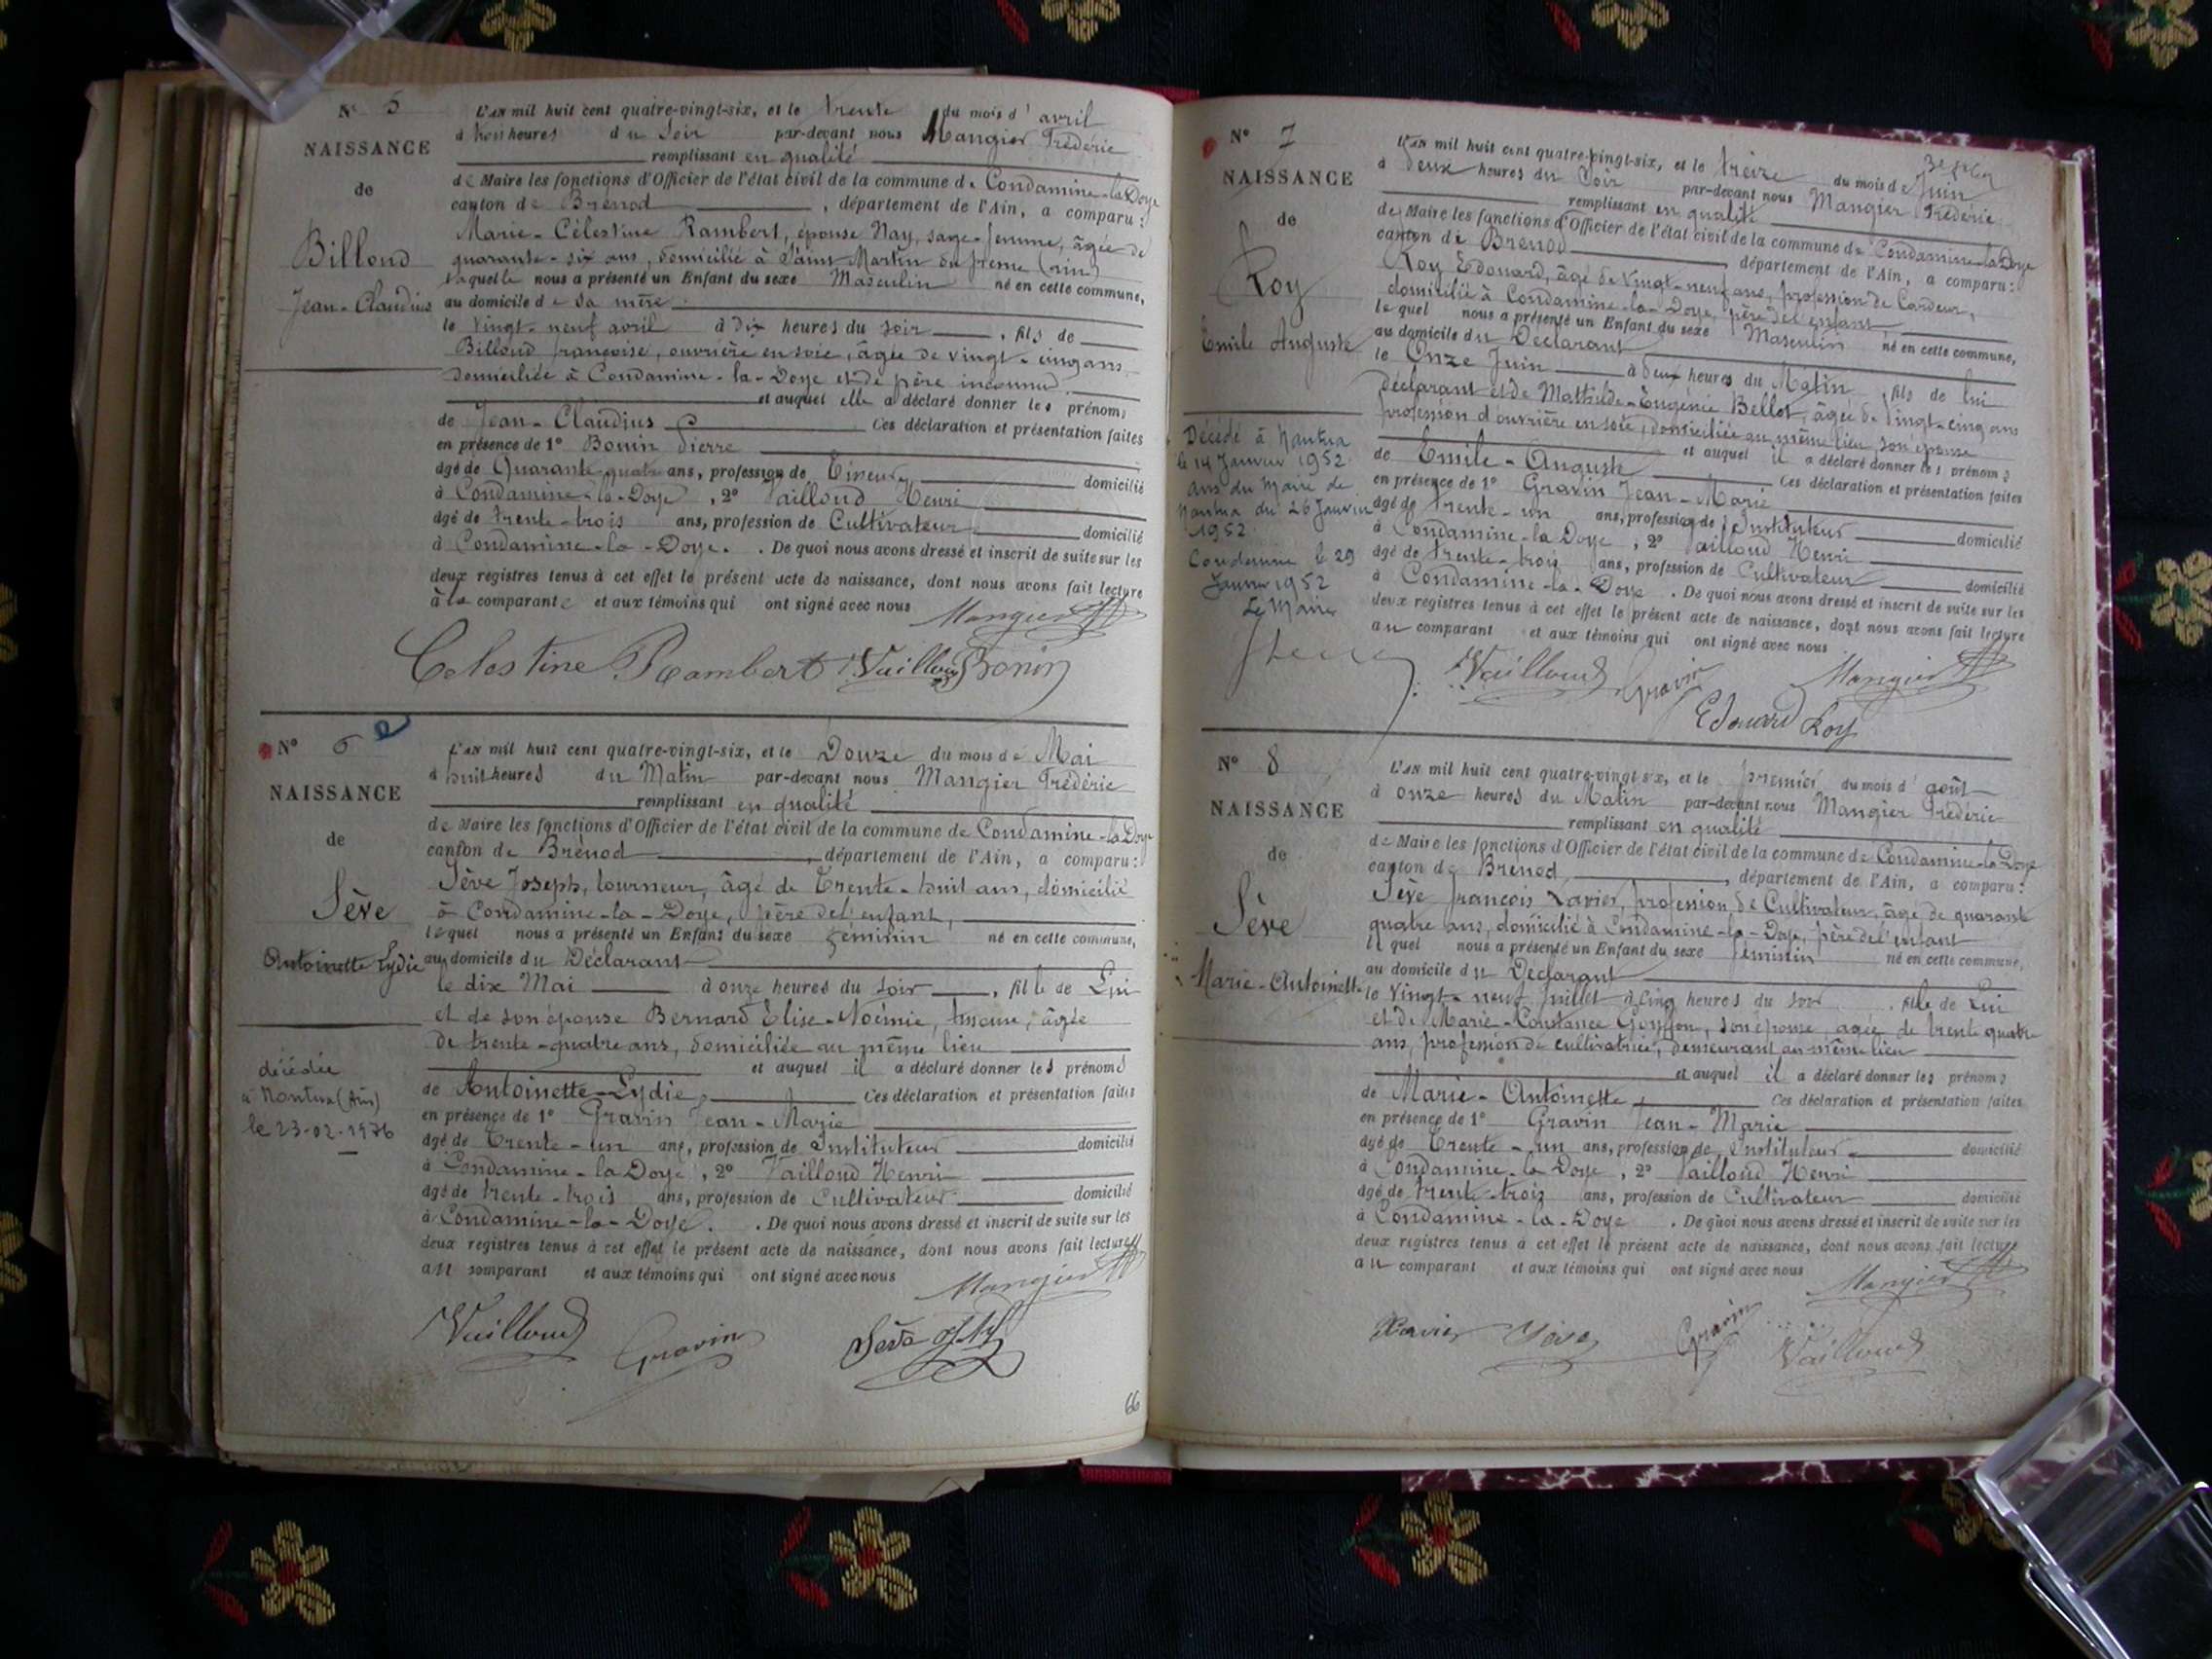 N° 5
NAISSANCE
de
Billoud
Jean-Claudius
L'AN mil huit cent quatre-vingt-six, et le trente du mois d'avril
à trois heures du soir par-devant nous Mangier Frédéric
remplissant en qualité
de Maire les fonctions d'Officier de l'état civil de la commune de Condamine-la-Doye
canton de Brénod, département de l'Ain, a comparu:
Marie-Célestine Rambert, épouse Nay, sage-femme, âgée de
quarante-six ans, domicilié à Saint-Martin du frêne (Ain)
laquelle nous a présenté un Enfant du sexe Masculin né en cette commune,
au domicile de sa mère
le vingt-neuf avril à dix heures du soir, fils de
Billoud françoise, ouvrière en soie, âgée de vingt-cinq ans
domiciliée à Condamine-la-Doye et de père inconnu
et auquel elle a déclaré donner les prénoms
de Jean-Claudius Ces déclaration et présentation faites
en présence de 1° Bonin Pierre
âgé de Quarante-quatre ans, profession de Tireur domicilié
à Condamine-la-Doye, 2° Vailloud Henri
âgé de trente-trois ans, profession de Cultivateur domicilié
à Condamine-la-Doye. De quoi nous avons dressé et inscrit de suite sur les
deux registres tenus à cet effet le présent acte de naissance, dont nous avons fait lecture
à la comparante et aux témoins qui ont signé avec nous Mangier
Celestine Rambert Vailloud Bonin
N° 6
NAISSANCE
de
Sève
Antoinette Lydie
décédée
à Nantua (Ain)
le 23-02-1976
L'AN mil huit cent quatre-vingt-six, et le Douze du mois de Mai
à huit heures du Matin par-devant nous Mangier Frédéric
remplissant en qualité
de Maire les fonctions d'Officier de l'état civil de la commune de Condamine-la-Doye
canton de Brénod, département de l'Ain, a comparu:
Sève Joseph, tourneur, âgé de Trente-huit ans, domicilié
à Condamine-la-Doye, père de l'enfant,
lequel nous a présenté un Enfant du sexe féminin né en cette commune,
au domicile du Déclarant
le dix Mai à onze heures du soir, fille de Lui
et de son épouse Bernard Élise-Noémie, âgée
de trente-quatre ans, domiciliée au même lieu
et auquel il a déclaré donner les prénoms
de Antoinette-Lydie, Ces déclaration et présentation faites
en présence de 1° Gravin Jean-Marie
âgé de Trente-un ans, profession de Instituteur domicilié
à Condamine-la-Doye, 2° Vailloud Henri
âgé de trente-trois ans, profession de Cultivateur domicilié
à Condamine-la-Doye. De quoi nous avons dressé et inscrit de suite sur les
deux registres tenus à cet effet le présent acte de naissance, dont nous avons fait lecture
au comparant et aux témoins qui ont signé avec nous Mangier
Vailloud Gravin Sève
66
N° 7
NAISSANCE
de
Roy
Emile Auguste
Décédé à Nantua
le 14 Janvier 1952
avis du Maire de
Nantua du 26 Janvier
1952.
Condamine le 29
Janvier 1952
Le Maire
L'AN mil huit cent quatre-vingt-six, et le treize du mois de Juin
à deux heures du Soir par-devant nous Mangier Frédéric
remplissant en qualité
de Maire les fonctions d'Officier de l'état civil de la commune de Condamine-la-Doye
canton de Brénod, département de l'Ain, a comparu:
Roy Edouard, âgé de Vingt-neuf ans, profession de Cardeur,
domicilié à Condamine-la-Doye, père de l'enfant
lequel nous a présenté un Enfant du sexe Masculin né en cette commune,
au domicile du Déclarant
le Onze Juin à deux heures du Matin, fils de lui
déclarant et de Mathilde-Eugénie Bellot, âgée de Vingt-cinq ans
profession d'ouvrière en soie, domiciliée au même lieu son épouse
et auquel il a déclaré donner les prénoms
de Emile-Auguste Ces déclaration et présentation faites
en présence de 1° Gravin Jean-Marie
âgé de trente-un ans, profession de Instituteur domicilié
à Condamine-la-Doye, 2° Vailloud Henri
âgé de trente-trois ans, profession de Cultivateur domicilié
à Condamine-la-Doye. De quoi nous avons dressé et inscrit de suite sur les
deux registres tenus à cet effet le présent acte de naissance, dont nous avons fait lecture
au comparant et aux témoins qui ont signé avec nous
Vailloud Gravin Mangier
Edouard Roy
N° 8
NAISSANCE
de
Sève
Marie-Antoinette
L'AN mil huit cent quatre-vingt-six, et le premier du mois d'août
à onze heures du Matin par-devant nous Mangier Frédéric
remplissant en qualité
de Maire les fonctions d'Officier de l'état civil de la commune de Condamine-la-Doye
canton de Brénod, département de l'Ain, a comparu:
Sève François Xavier, profession de Cultivateur, âgé de quarante
quatre ans, domicilié à Condamine-la-Doye, père de l'enfant
lequel nous a présenté un Enfant du sexe féminin né en cette commune,
au domicile du Déclarant
le Vingt-neuf Juillet à cinq heures du soir, fille de Lui
et de Marie-Constance, son épouse, âgée de trente quatre
ans, profession de cultivatrice, demeurant au même lieu
et auquel il a déclaré donner les prénoms
de Marie-Antoinette, Ces déclaration et présentation faites
en présence de 1° Gravin Jean-Marie
âgé de Trente-un ans, profession de Instituteur domicilié
à Condamine-la-Doye, 2° Vailloud Henri
âgé de trente-trois ans, profession de Cultivateur domicilié
à Condamine-la-Doye. De quoi nous avons dressé et inscrit de suite sur les
deux registres tenus à cet effet le présent acte de naissance, dont nous avons fait lecture
au comparant et aux témoins qui ont signé avec nous Mangier
Xavier Sève Gravin Vailloud